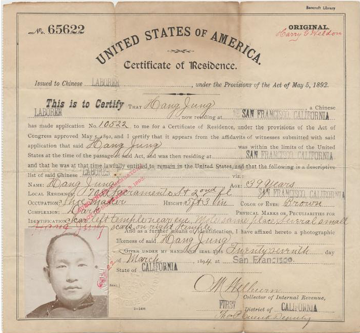 Bancroft Library
No. 65622
ORIGINAL.
UNITED STATES OF AMERICA.
Certificate of Residence.
Issued to Chinese LABORER, under the Provisions of the Act of May 5, 1892.
This is to Certify THAT Hang Jung a Chinese
LABORER now residing at SAN FRANCISCO CALIFORNIA
has made application No. 10522 to me for a Certificate of Residence, under the provisions of the Act of
Congress approved May 5, 1892, and I certify that it appears from the affidavits of witnesses submitted with said
application that said Hang Jung was within the limits of the United
States at the time of the passage of said Act, and was then residing at SAN FRANCISCO CALIFORNIA
and that he was at that time lawfully entitled to remain in the United States, and that the following is a descriptive
list of said Chinese LABORER
NAME: Hang Jung AGE: 39 Years
LOCAL RESIDENCE: Sacramento St 2nd fl. SAN FRANCISCO CALIFORNIA
OCCUPATION: HEIGHT: COLOR OF EYES: Brown
COMPLEXION: Dark PHYSICAL MARKS OR PECULIARITIES FOR
IDENTIFICATION:
scars on right temple
And as a further means of identification, I have affixed hereto a photographic
likeness of said Hang Jung
GIVEN UNDER MY HAND AND SEAL this Twenty
day of March, 1894, at San Francisco.
State of CALIFORNIA
O. M. Welburn
Collector of Internal Revenue,
FIRST District of CALIFORNIA